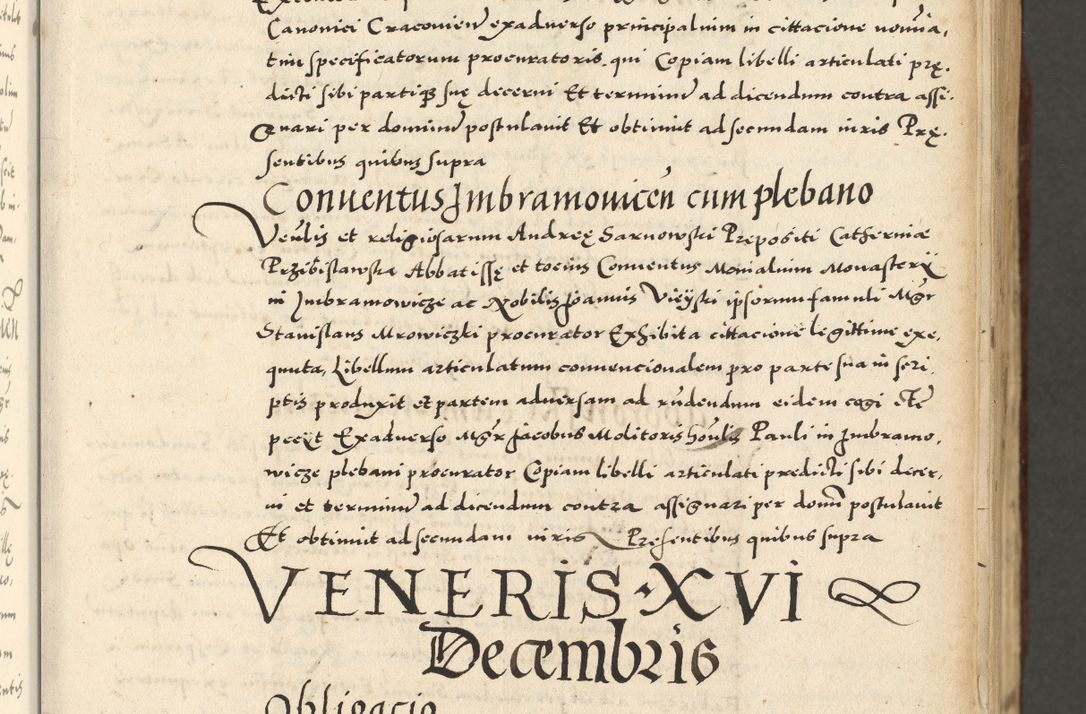 Canonici Cracovien exadverso principalium in cittacione nomina,
tim specificatorum procuratoris qui Copiam libelli articulati prę,
dicti sibi partiq3 suę decerni Et terminu ad dicendum contra assi,
gnari per dominu postulauit Et obtinuit ad secundam iuris Prę,
sentibus quibus supra
Conuentus Imbramouicen cum plebano
Venlis et religiosarum Andreę Sarnowski Prepositi Catherniae
Przibislawska Abbatissę et tocius Conuentus Monialium Monasterii
in Imbramowicze ac Nobilis Joannis Vieyski ipsorum famuli Mgr
Stanislaus Mrowiczki procurator Exhibita cittacione legittime exe,
quuta, Libellum articulatum conuencionalem pro parte sua in scri,
ptis produxit et partem aduersam ad rndendum eidem cogi etc
peciit Exaduerso Mgr Jacobus Molitoris honlis Pauli in Imbramo,
wicze plebani procurator Copiam libelli articulati predicti sibi decer,
ni et terminu ad dicendum contra assignari per domi postulauit
Et obtinuit ad secundam iuris Presentibus quibus supra
VENERIS · XVI
Decembris
Obligacio